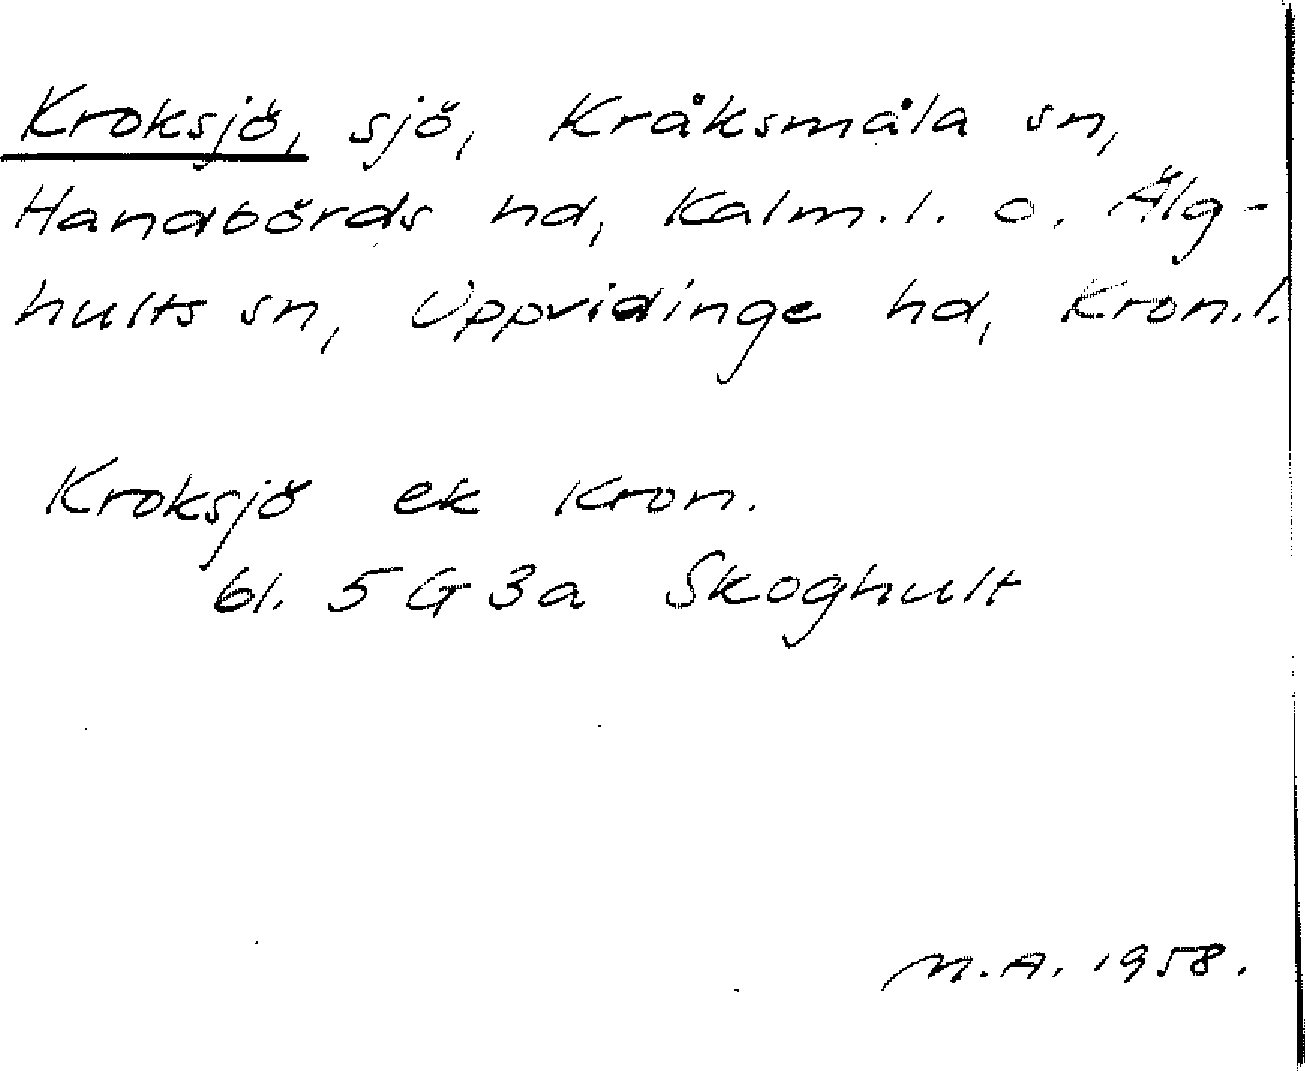 Kroksjö, sjö, Kråksmåla sn,
Handbörds hd, Kalm.l. o. Älg-
hults sn, Uppvidinge hd, Kron.l.
Kroksjö ek Kron.
bl. 5G3a Skoghult
M.A. 1958.